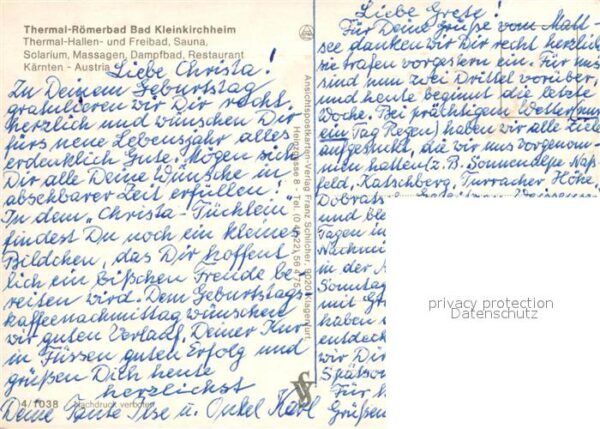 Thermal-Römerbad Bad Kleinkirchheim
Thermal-Hallen- und Freibad, Sauna,
Solarium, Massagen, Dampfbad, Restaurant
Kärnten - Austria
Liebe Christa!
Zu Deinem Geburtstag
gratulieren wir Dir recht
herzlich und wünschen Dir
fürs neue Lebensjahr alles
erdenklich Gute. Mögen sich
Dir alle Deine Wünsche in
absehbarer Zeit erfüllen!
In dem "Christa-Tüchlein"
findest Du noch ein kleines
Bildchen, das Dir hoffent
lich ein bißchen Freude be-
reiten wird. Dem Geburtstags-
kaffenachmittag wünschen
wir guten Verlauf, Deiner Kur
in Füssen guten Erfolg und
grüßen Dich heute
herzlichst
Deine Tante Ilse u. Onkel Karl
4/1038 Nachdruck verboten
Ansichtspostkarten-Verlag Franz Schilcher, 9020 Klagenfurt,
Liebe Grete!
Für Deine Grüße vom Matt-
see danken wir Dir recht herzlich
sie trafen vorgestern ein. Für uns
sind nun zwei Drittel vorüber,
und heute beginnt die letzte
Woche. Bei prächtigem Wetter (nur
ein Tag Regen) haben wir alle Ziele
aufgesucht, die wir uns vorgenom
men hatten (z.B. Sonnenalpe Naß-
feld, Katschberg, Turracher Höhe,
Dobratsch
und ble
Tagen in
Nachmi
in der
Sonntag
mit
haben
entdeck
wir Di
Spätso
Für h
Grüßen
privacy protection
Datenschutz